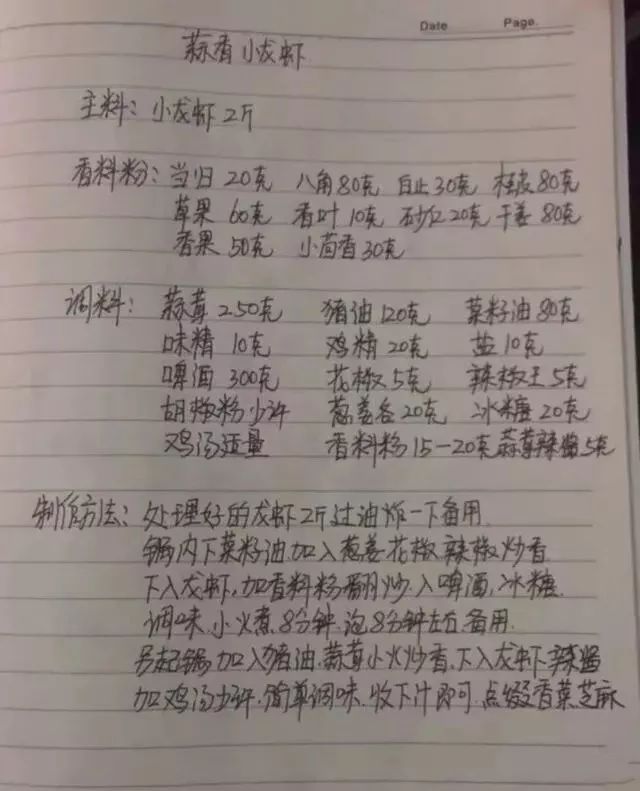 Date Page.
蒜香小龙虾
主料：小龙虾2斤
香料粉：当归20克 八角80克 白止30克 桂皮80克
草果 60克 香叶10克 砂仁20克 干姜 80克
香果 50克 小茴香30克
调料：蒜茸 250克 猪油120克 菜籽油80克
味精 10克 鸡精 20克 盐10克
啤酒 300克 花椒5克 辣椒王5克
胡椒粉少许 葱姜各20克 冰糖20克
鸡汤适量 香料粉15-20克 蒜蓉辣酱5克
制作方法：处理好的龙虾2斤过油炸一下备用
锅内下菜籽油加入葱姜花椒辣椒炒香
下入龙虾，加香料粉翻炒，入啤酒，冰糖
调味，小火煮8分钟，泡8分钟左右备用.
另起锅，加入猪油.蒜茸小火炒香.下入龙虾，辣酱
加鸡汤少许.简单调味.收下汁即可.点缀香菜芝麻